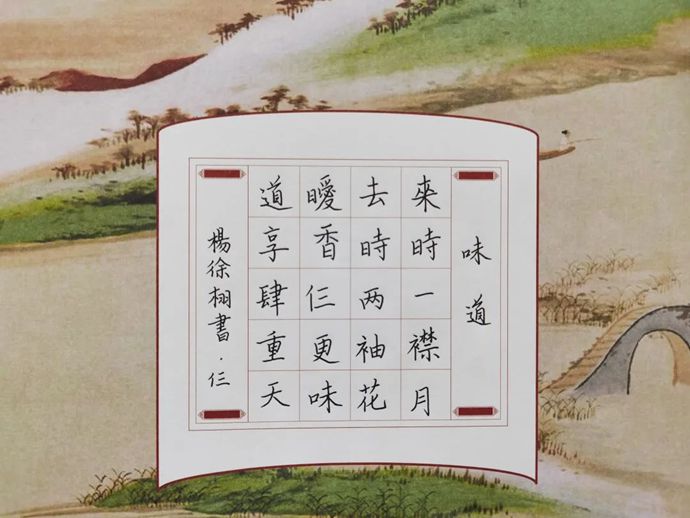 味道
來時一襟月
去時两袖花
曖香仨更味
道享肆重天
楊徐栩書·仨